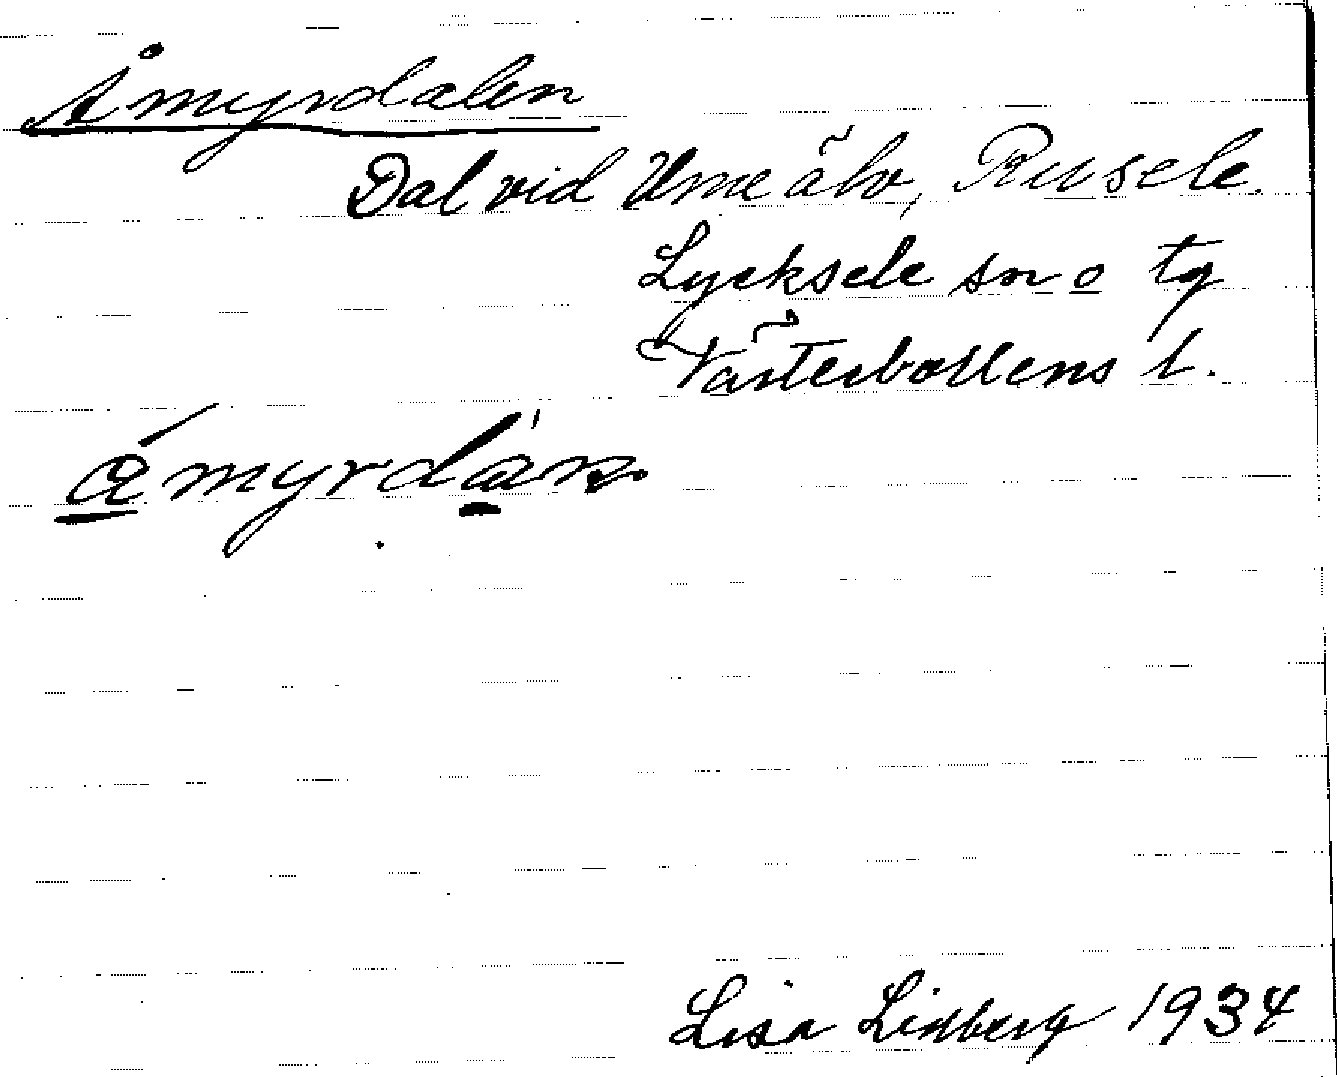 Åmyrdalen
Dal vid Umeälv, Rusele
Lycksele sn o tg
Västerbottens l.
åmyrdàn
Lisa Lidberg 1934